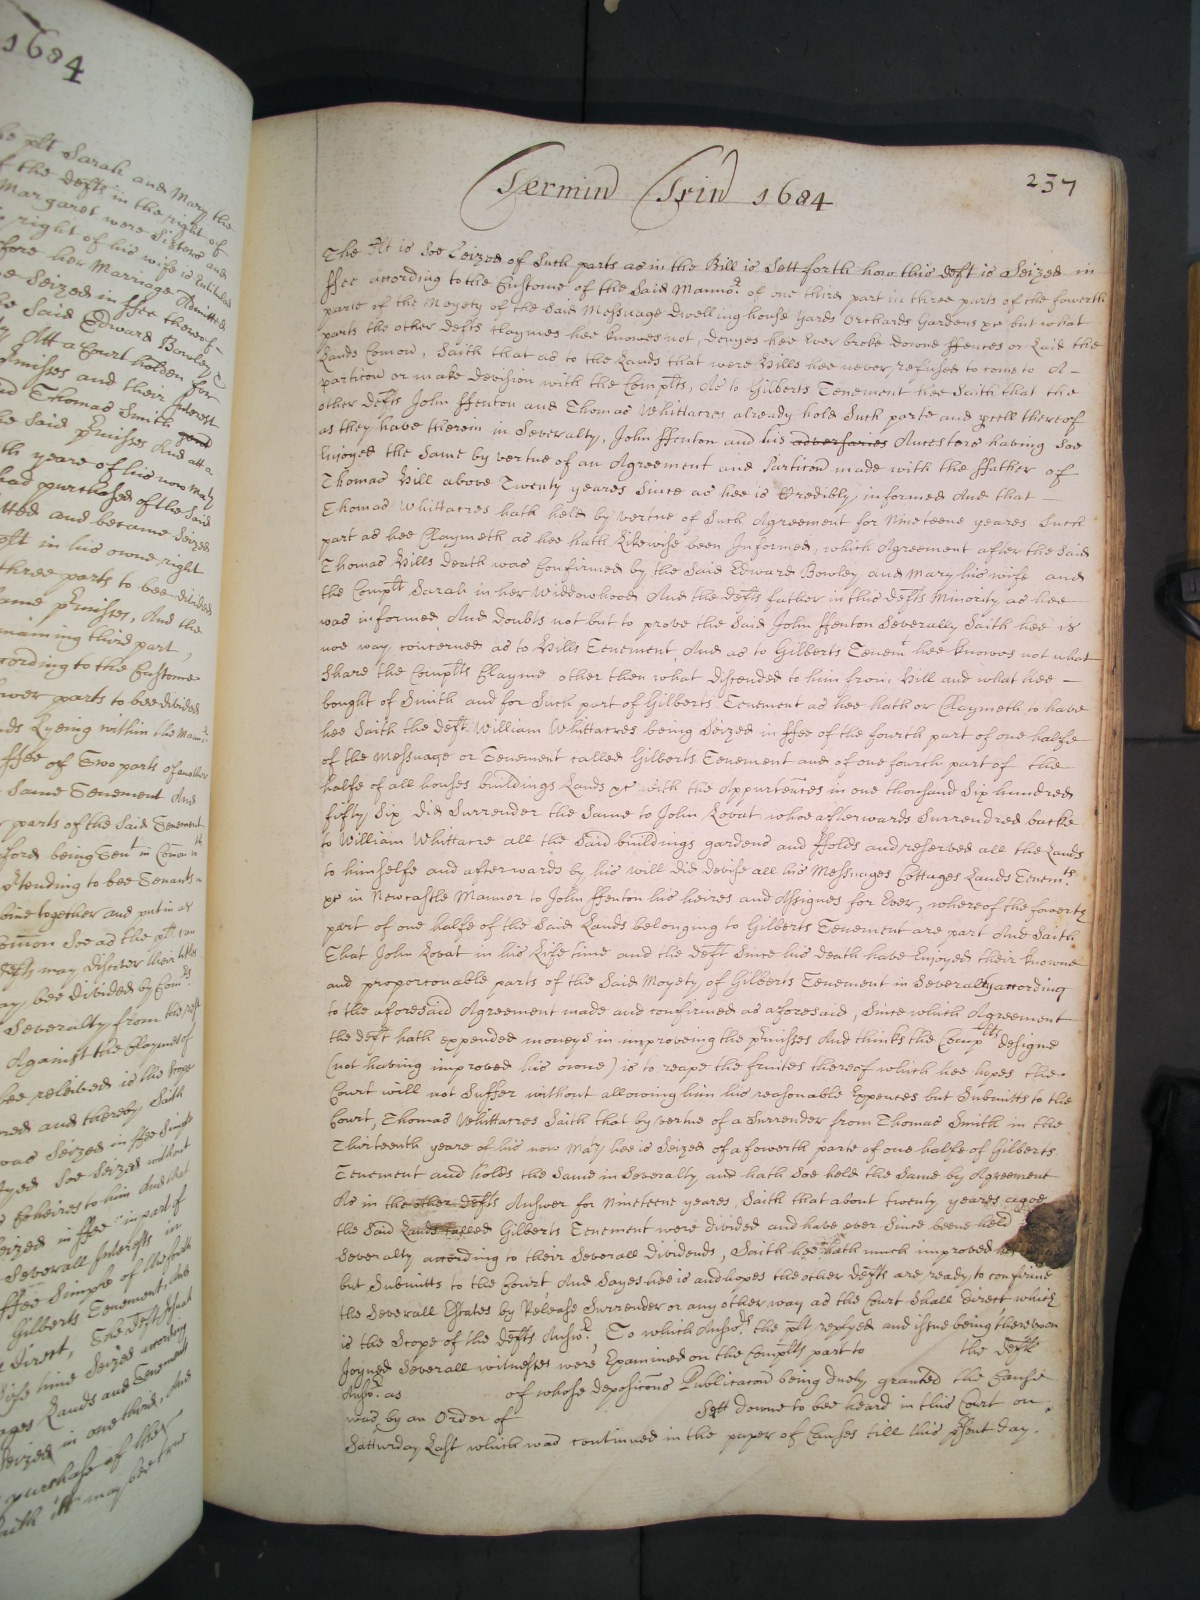 1684
he plt Sarah and Mary the
of the Defts in the right of
Margaret were Sisters and
right of his wife is Entituled
fore her Marriage Admitted
Seized in ffee thereof
he Said Edward Bowley
Att a Court holden for
pmisses and their Interest
Thomas Smith gent
he Said pmisses And att a
th yeare of his now Maty
had purchased of the Said
itted and became Seized
eft in his owne right
three parts to bee divided
ame pmisses, And the
maining third part,
cording to the Custome
parts to bee divided
ds Lyeing within the Mannr
ffee of Two parts of another
Same Tenement And
parts of the Said Tenement
ford being Tent in Comon
ptending to bee Tenants
bine together and put in
omon Soe as the plt can
Defts may discover their titles
ay bee divided by Comrs
Severalty from the rest
Against the Claymes of
bee releived is the Scope
and thereby Saith
was Seized in ffee Simple
Soe Seized without
Coheires to him And that
Seized in ffee in part of
Severall Interests in
ffee Simple of the forth
Gilberts Tenement, And
Direct, The Deft
life time Seized according
ages Lands and Tenements
Seized in one third, And
purchase of the
aith itt may bee true
Termin Trin 1684
237
The plt is Soe Seized of Such parts as in the Bill is Sett forth how this Deft is Seized in
ffee according to the Custome of the Said Mannor of one third part in three parts of the fowerth
parte of the Moyety of the Said Messuage Dwelling house Yards Orchards Gardens &c but what
parts the other Defts Claymes hee knowes not, Denyes hee Ever broke downe ffences or Laid the
Lands Comon, Saith that as to the Lands that were Hills hee never refused to come to A-
particon or make Devision with the Complts, As to Gilberts Tenement hee Saith that the
other Defts John ffenton and Thomas Whittacres already hold Such parte and pcell thereof
as they have therein in Severalty, John ffenton and his adversaries Ancestors having Soe
Enjoyed the Same by vertue of an Agreement and Particon made with the ffather of
Thomas Hill above Twenty yeares Since as hee is Credibly informed And that -
Thomas Whittacres hath held by vertue of Such Agreement for Nineteene yeares Such
part as hee Claymeth as hee hath Likewise been Informed, which Agreement after the Said
Thomas Hills death was Confirmed by the Said Edward Bowley and Mary his wife and
the Complt Sarah in her Widdowhood And the Defts father in this Defts Minority as hee
was informed And Doubts not but to prove the Said John ffenton Severally Saith hee is
noe way concerned as to Hills Tenement, And as to Gilberts Tenemt hee knowes not what
Share the Complts Clayme other then what Discended to him from Hill and what hee -
bought of Smith and for Such part of Gilberts Tenement as hee hath or Claymeth to have
hee Saith the Deft William Whittacres being Seized in ffee of the fourth part of one halfe
of the Messuage or Tenement called Gilberts Tenement and of one fourth part of the
halfe of all houses buildings Lands &c with the Appurtenaces in one thousand Six hundred
fifty Six did Surrender the Same to John Lovat whoe afterwards Surrendred backe
to William Whittacre all the Said buildings gardens and ffolds and reserved all the Lands
to himselfe and afterwards by his will did Devise all his Messuages Cottages Lands Tenemts
&c in Newcastle Mannor to John ffenton his heires and Assignes for Ever, whereof the fowerth
part of one halfe of the Said Lands belonging to Gilberts Tenement are part And Saith
That John Lovat in his Life time and the Deft Since his death have Enjoyed their knowne
and proporconable parts of the Said Moyety of Gilberts Tenement in Severalty according
to the aforesaid Agreement made and confirmed as aforesaid, Since which Agreement
the Deft hath expended moneys in improveing the pmisses And thinks the Complts designe
(not having improved his owne) is to reape the fruites thereof which hee hopes the
Court will not Suffer without allowing him his reasonable Expences but Submitts to the
Court, Thomas Whittacres Saith that by vertue of a Surrender from Thomas Smith in the
Thirteenth yeare of his now Maty hee is Seized of a fowerth parte of one halfe of Gilberts
Tenement and holds the Same in Severalty and hath Soe held the Same by Agreement
As in the other Defts Answer for Nineteene yeares Saith that about twenty yeares agoe
the Said Lands called Gilberts Tenement were divided and have ever Since beene held
Severalty according to their Severall Dividends, Saith hee hath much improved his
but Submitts to the Court And Sayes hee is and hopes the other Defts are ready to confirme
the Severall Estates by Release Surrender or any other way as the Court Shall direct which
is the Scope of the Defts Answr, To which Answrs the plt replyed and issue being thereupon
Joyned Severall witnesses were Examined on the Complts part to the Defts
Answr as of whose deposicons Publicacon being duely granted the Cause
was by an Order of Sett downe to bee heard in this Court on
Satturday Last which was continued in the paper of Causes till this psent day.